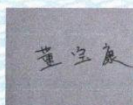 董宝良